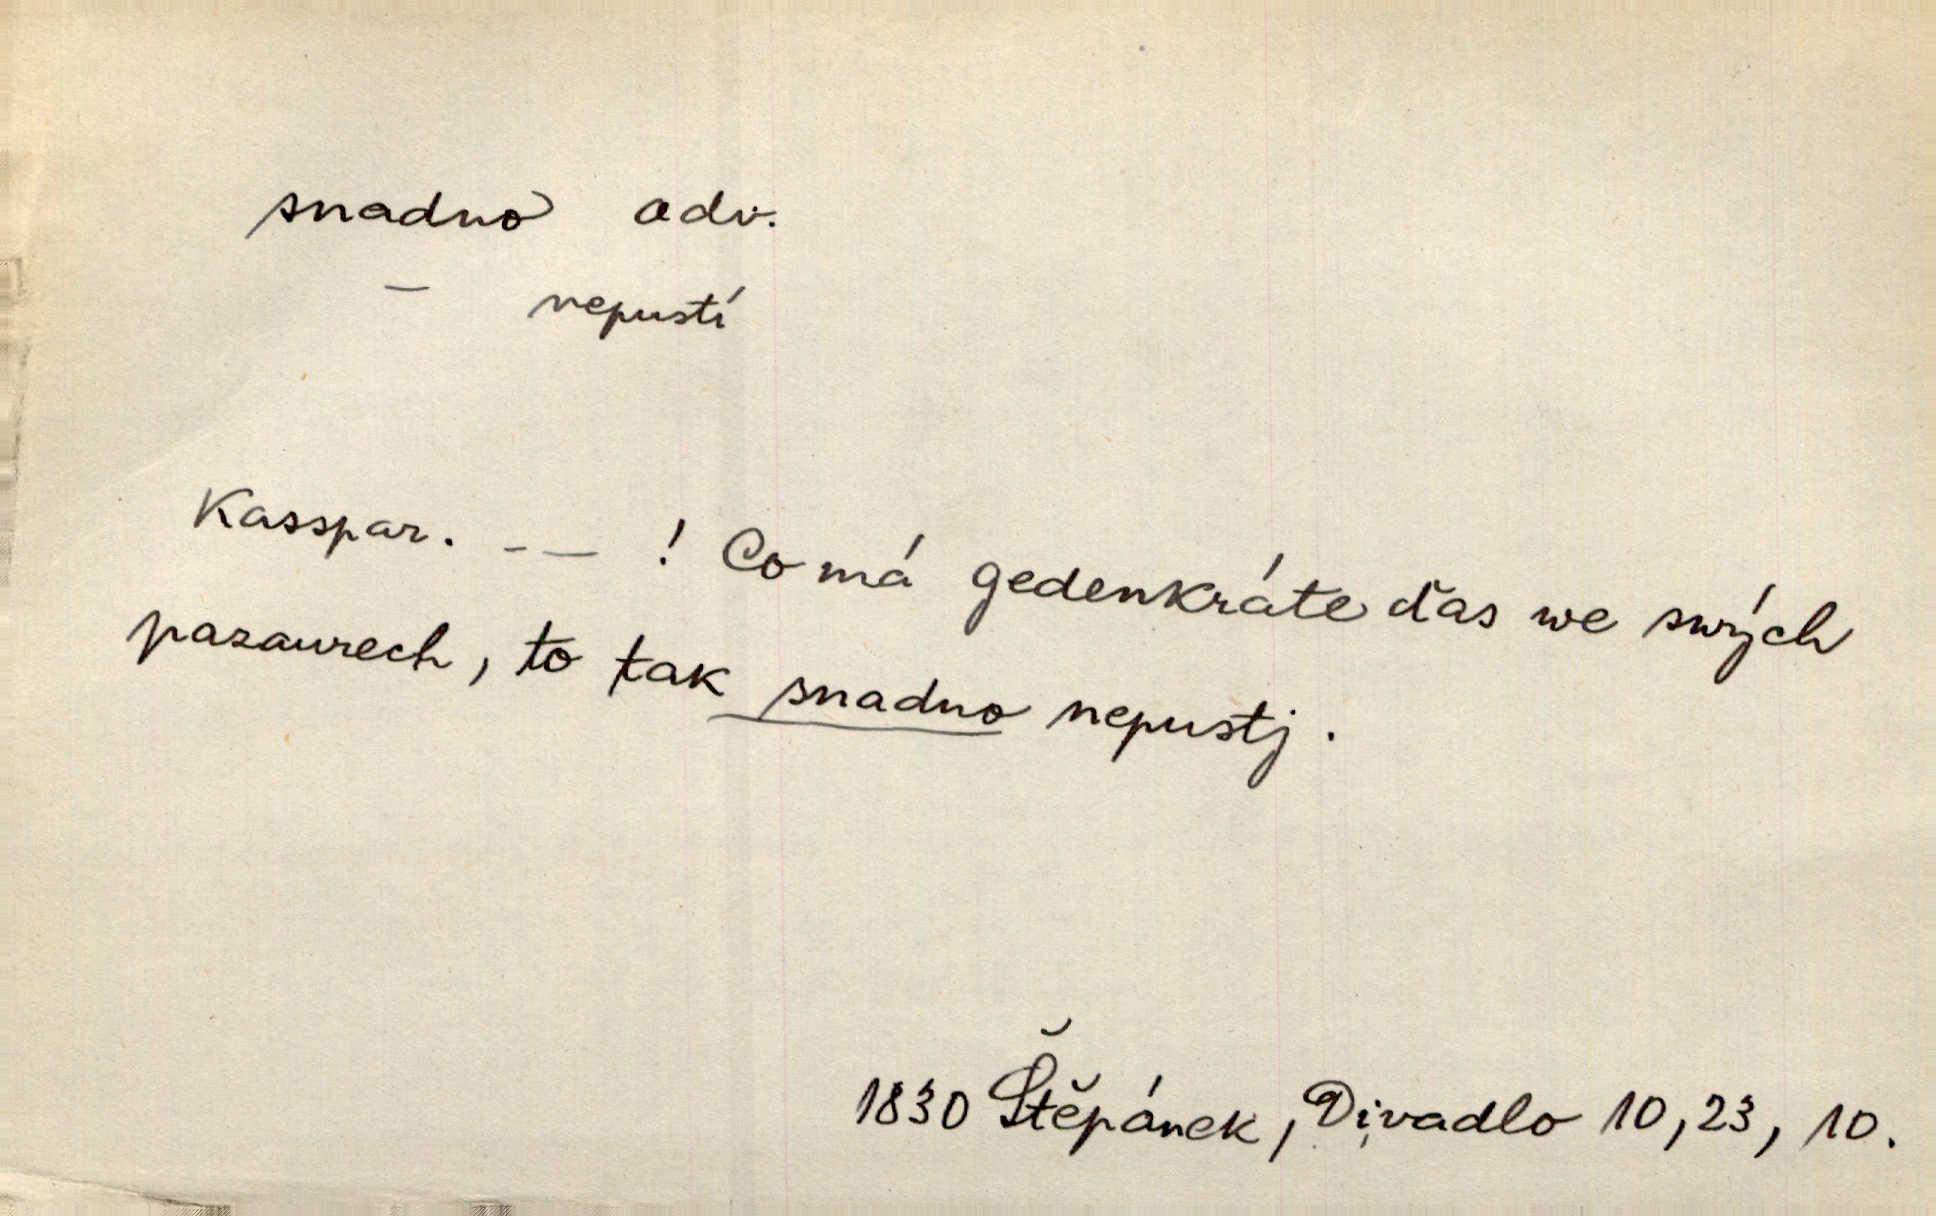 snadno adv.
— nepustí
Kasspar. - — ! Co má gedenkráte ďas we swých
pazaurech, to tak snadno nepustj.
1830 Štěpánek, Divadlo 10, 23, 10.